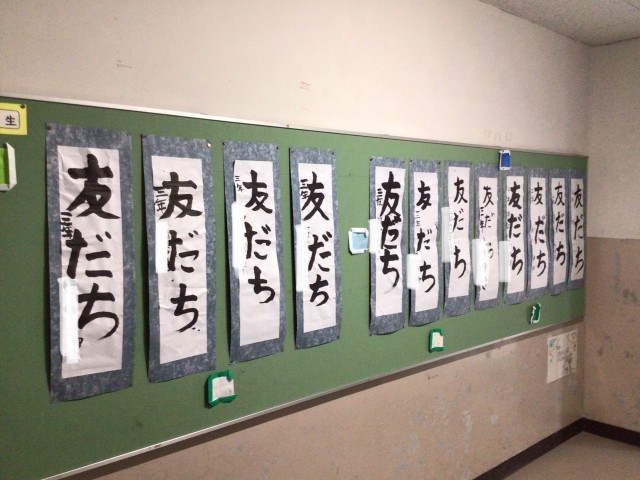 生
友だち
三年
友だち
三年
友だち
三年
友だち
三年
友だち
三年
友だち
三年
友だち
友だち
三年
友だち
友だち
友だち
友だち